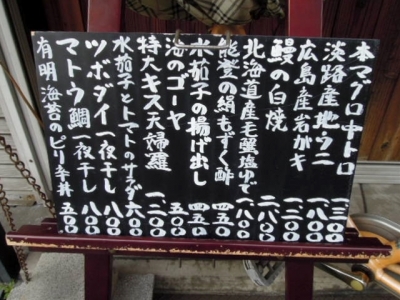 本マグロ中トロ 一三〇〇
淡路産地ウニ 一八〇〇
広島産岩ガキ 一二〇〇
鰻の白焼 二八〇〇
北海道産毛蟹塩ゆで 一八〇〇
能登の絹もずく酢 四五〇
水茄子の揚げ出し 四五〇
海のゴーヤ 五〇〇
特大キス天婦羅 一、二〇〇
水茄子とトマトのサラダ 六〇〇
ツボダイ一夜干し 八〇〇
マトウ鯛一夜干し 八〇〇
有明海苔のピリ辛丼 五五〇